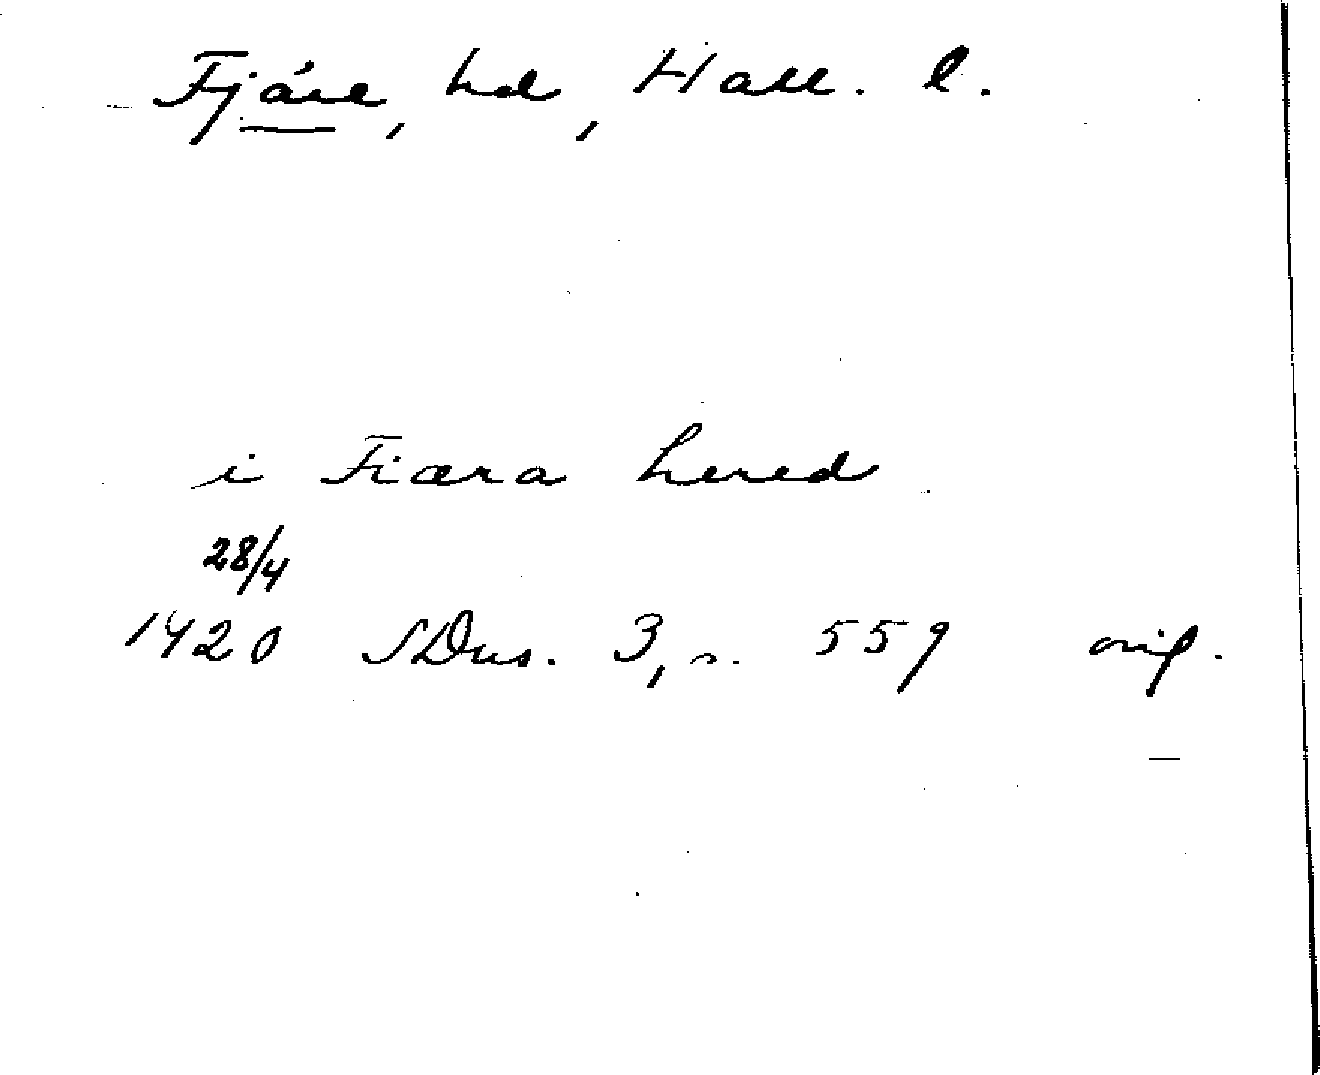 Fjäre, hd, Hall. l.
i Fiæra hered
28/4
1420 SDns. 3, s. 559 orig.